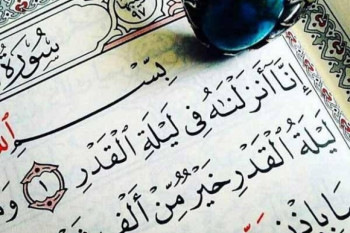 سُورَةُ
بِسْمِ ٱللَّ
إِنَّآ أَنزَلْنَٰهُ فِى لَيْلَةِ ٱلْقَدْرِ ١ وَمَ
لَيْلَةُ ٱلْقَدْرِ خَيْرٌ مِّنْ أَلْفِ